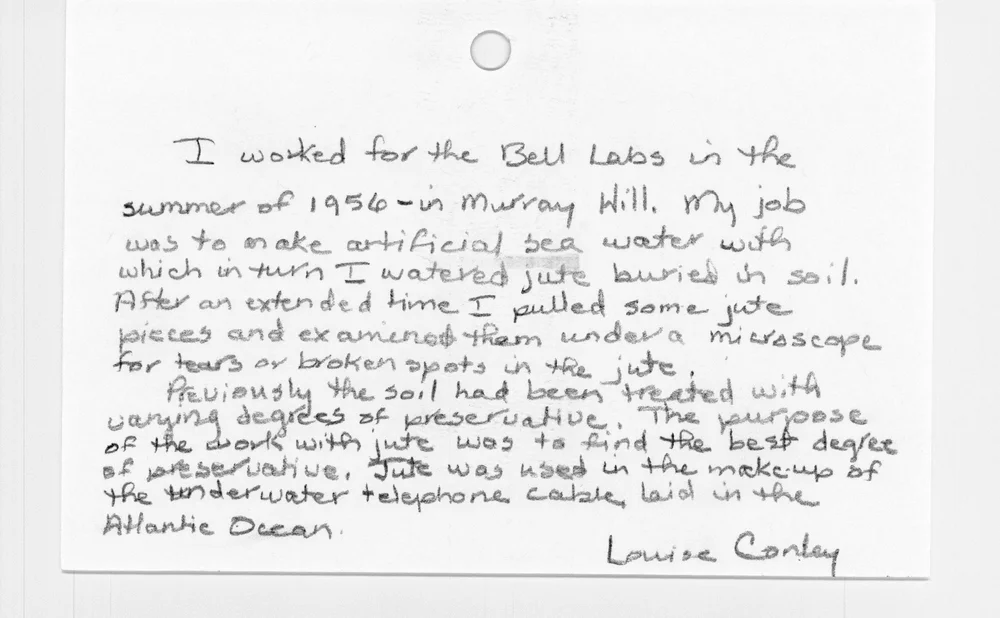 I worked for the Bell Labs in the
summer of 1956 - in Murray Hill. My job
was to make artificial sea water with
which in turn I watered jute buried in soil.
After an extended time I pulled some jute
pieces and examined them under a microscope
for tears or broken spots in the jute.
Previously the soil had been treated with
varying degrees of preservative. The purpose
of the work with jute was to find the best degree
of preservative. Jute was used in the make-up of
the underwater telephone cable laid in the
Atlantic Ocean.
Louise Conley